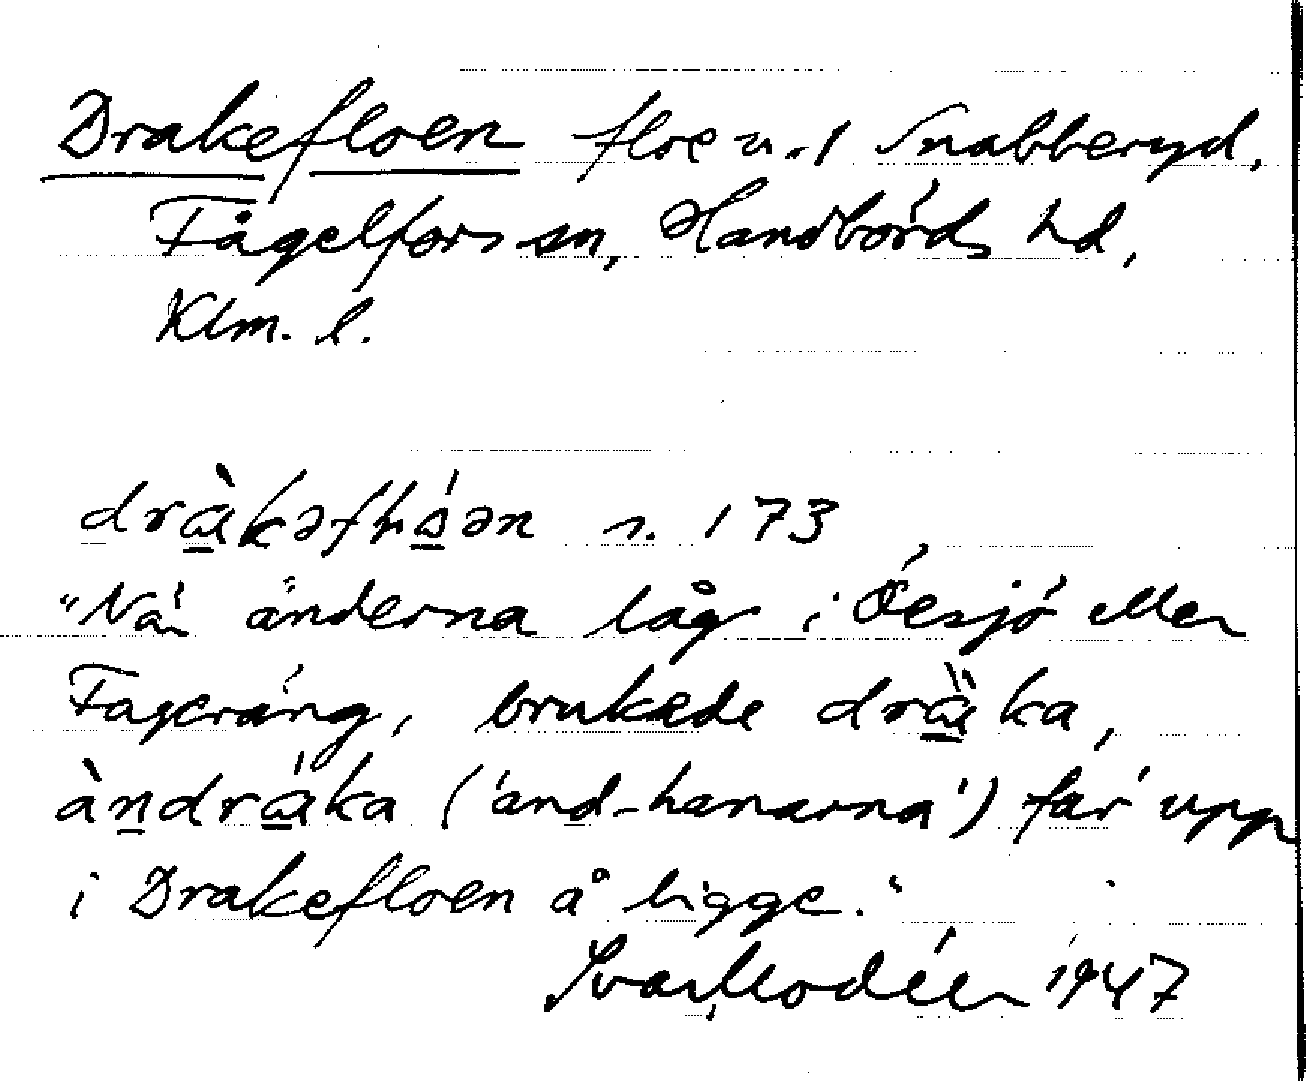 Drakefloen floe n. 1 Snabberyd,
Fågelfors sn, Handbörds hd,
Klm. l.
dràkəfłóən s. 173
"Nä́r änderna låg i Öesjö eller
Fageräng, brukade dräka,
àndräka ('and-hanarna') far upp
i Drakefloen å ligge."
Ivar Modéer 1947